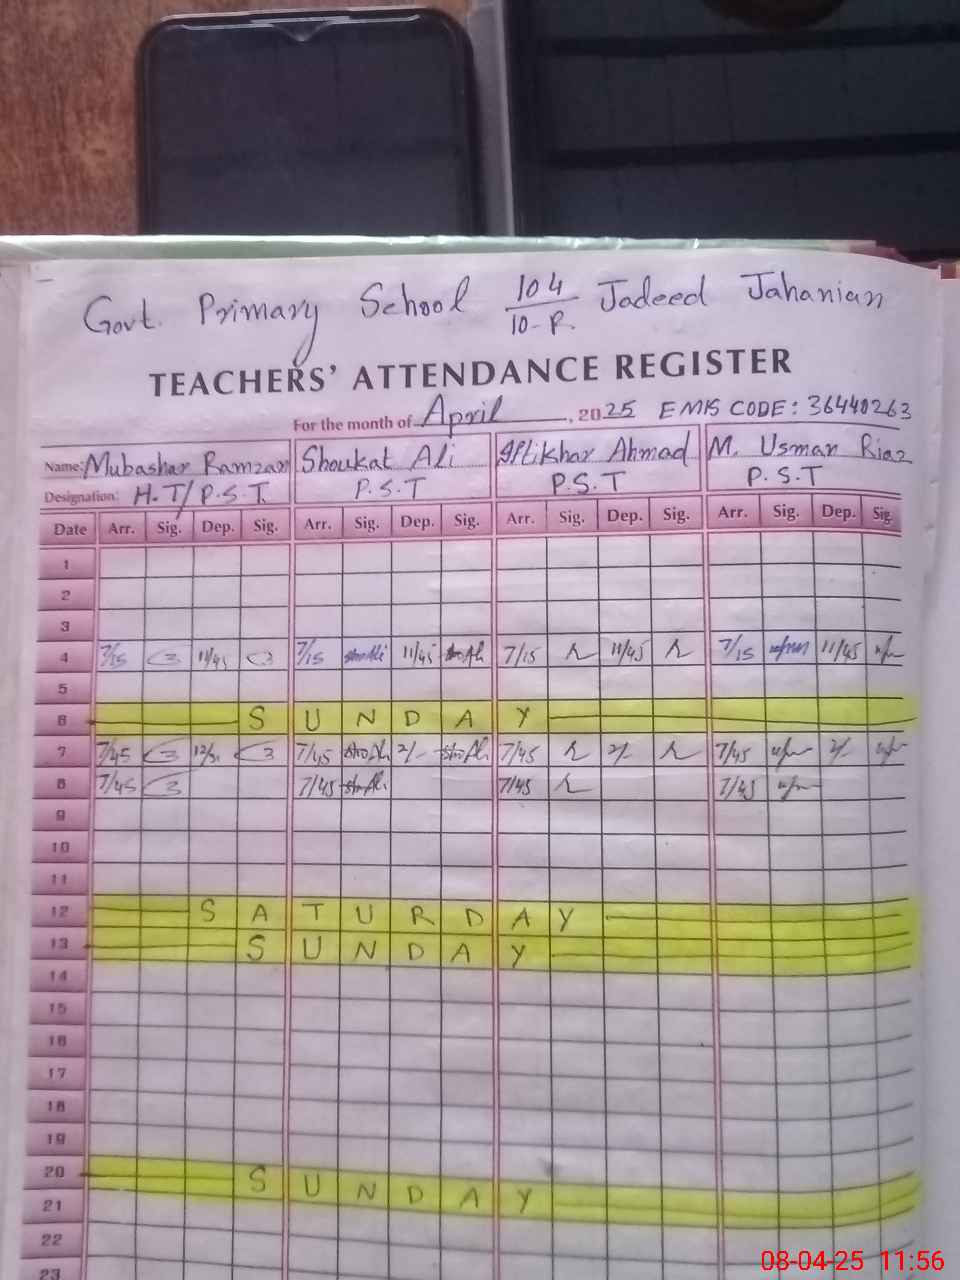 Govt. Primary School 104/10-R. Jadeed Jahanian
TEACHERS' ATTENDANCE REGISTER
For the month of April, 2025 EMIS CODE: 36440263
Name: Mubashar Ramzan Shoukat Ali Iftikhar Ahmad M. Usman Riaz
Designation: H.T/P.S.T. P.S.T P.S.T P.S.T
Date Arr. Sig. Dep. Sig. Arr. Sig. Dep. Sig. Arr. Sig. Dep. Sig. Arr. Sig. Dep. Sig.
1
2
3
4 7/15 11/45 7/15 11/45 7/15 11/45 7/15 11/45
5
6 SUNDAY
7 7/45 7/45 2/- 7/45 2/- 7/45 2/-
8 7/45 7/45 7/45 7/45
9
10
11
12 SATURDAY
13 SUNDAY
14
15
16
17
18
19
20 SUNDAY
21
22
23
08-04-25 11:56